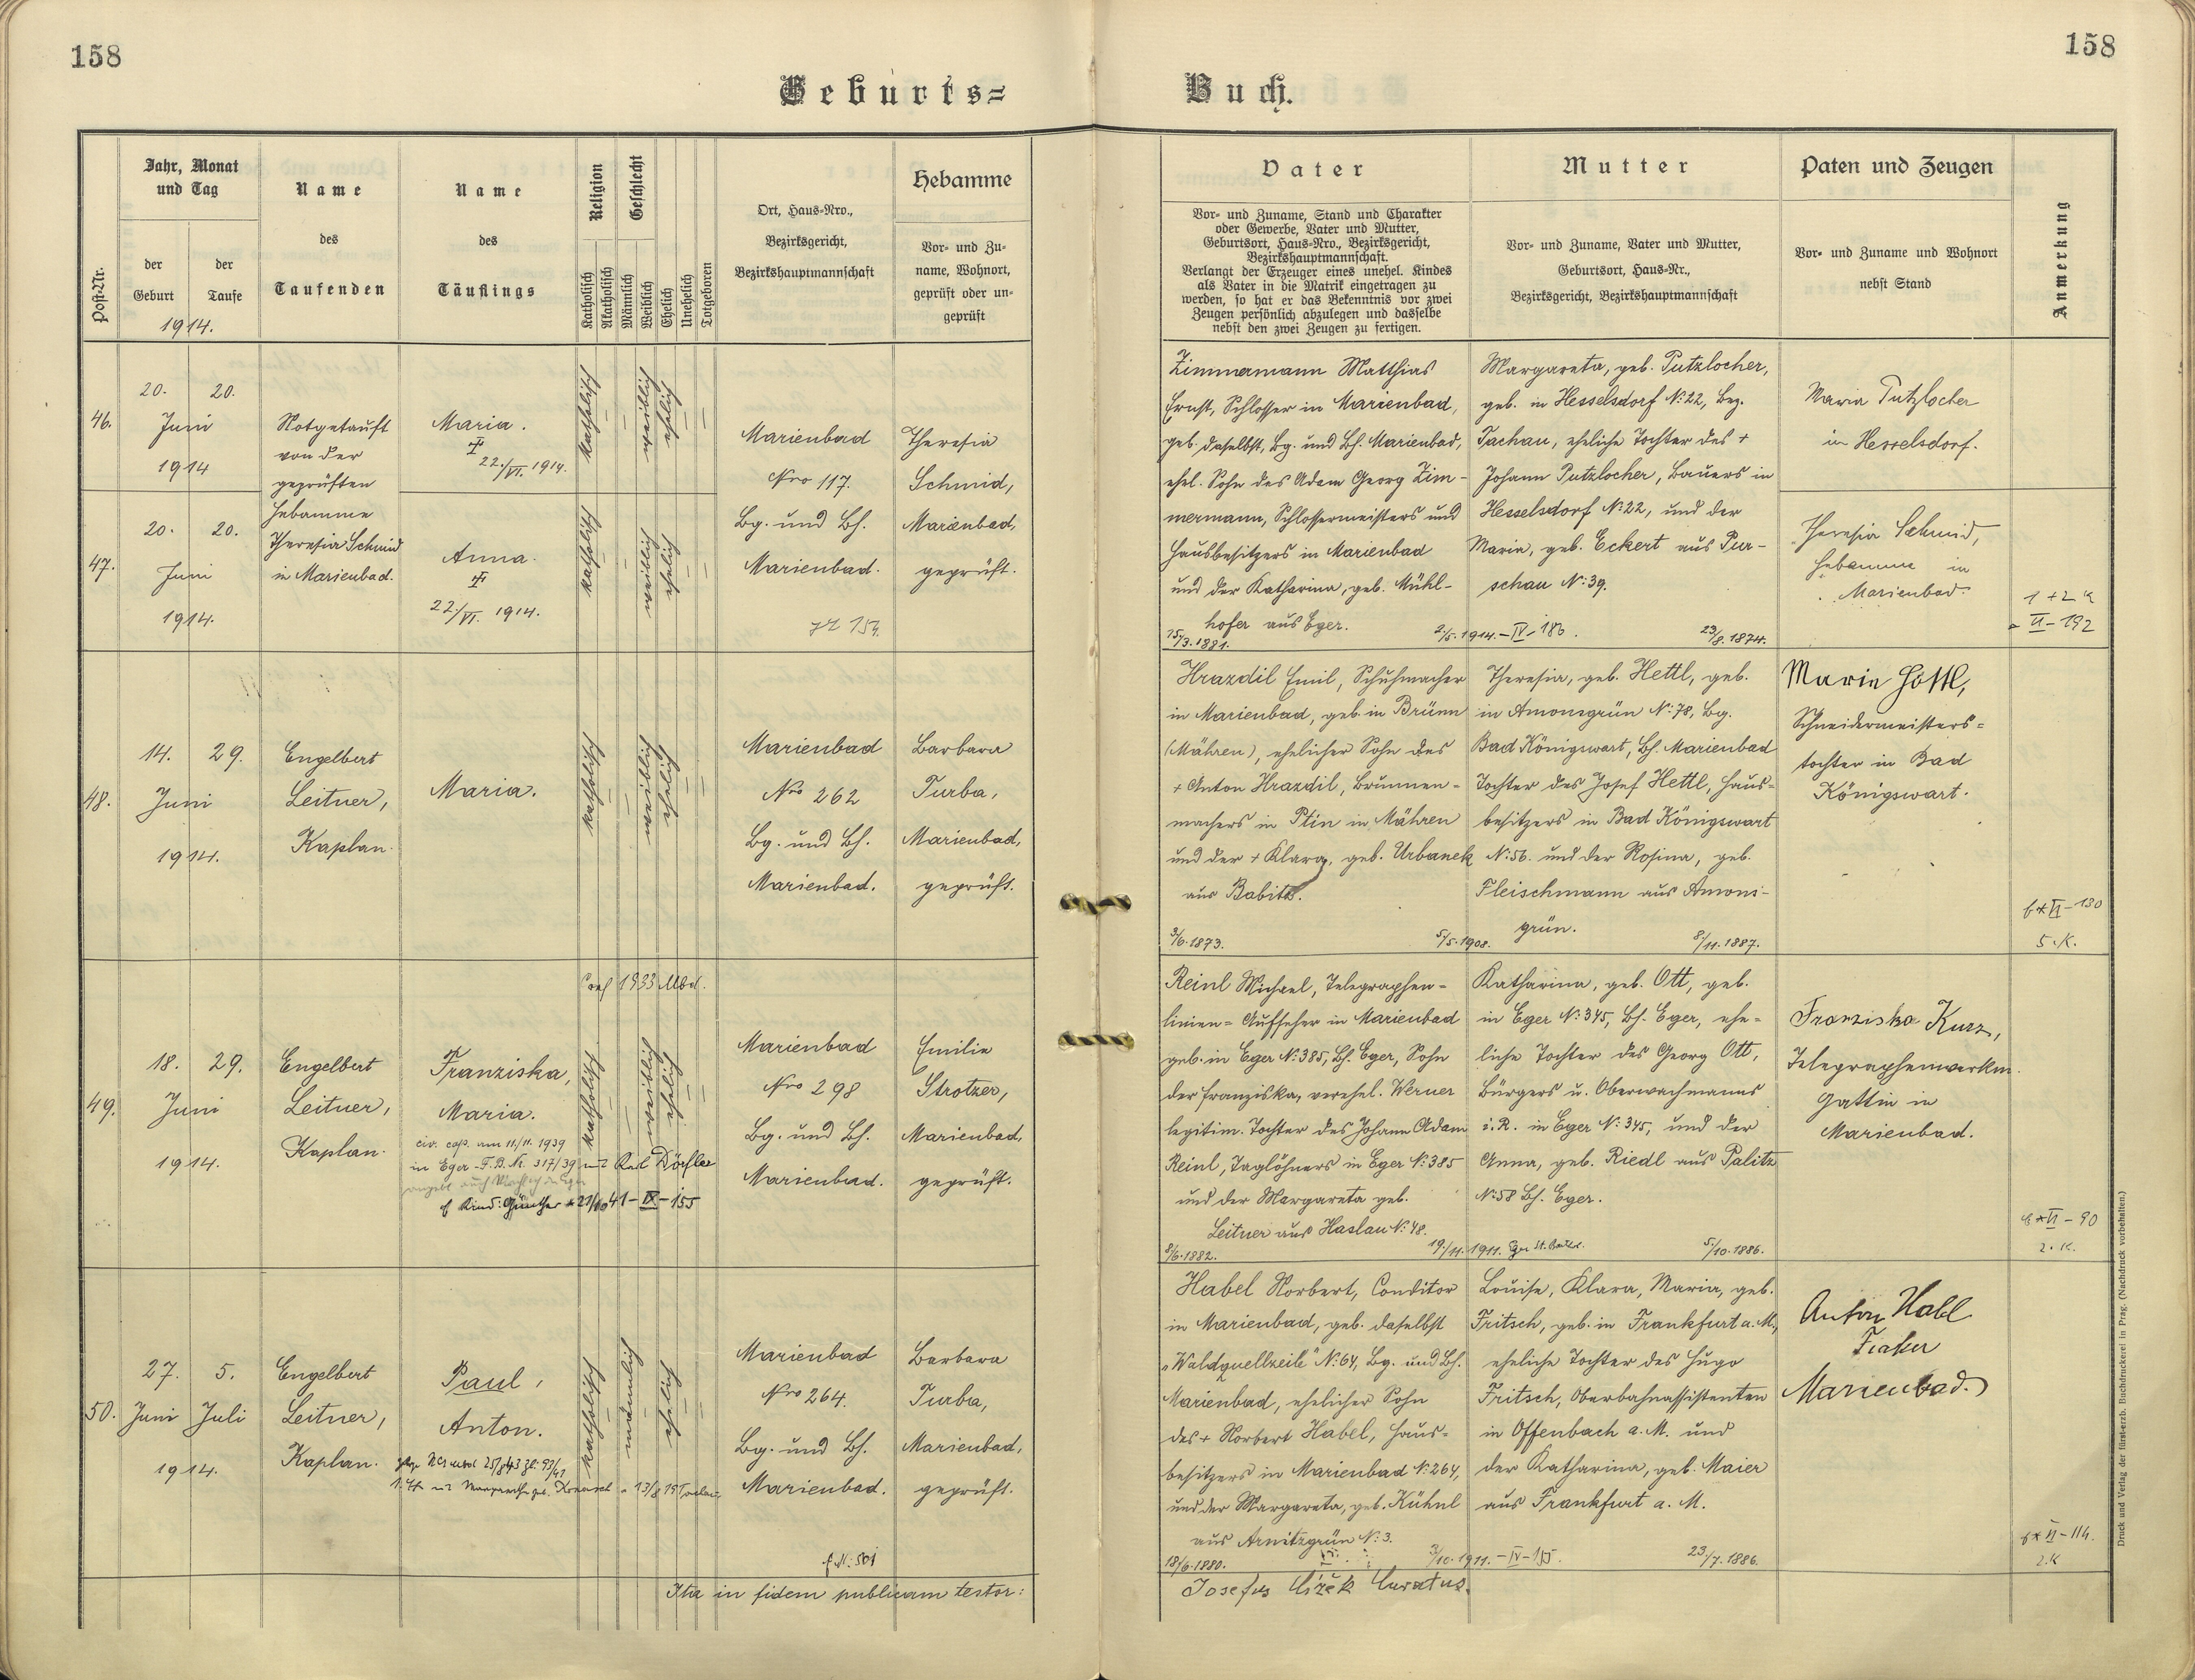 158
158
Geburts=
Buch.
Post-Nr.
Jahr, Monat
und Tag
der
Geburt
der
Taufe
1914.
Name
des
Taufenden
Name
des
Täuflings
Religion
Katholisch
Akatholisch
Geschlecht
Männlich
Weiblich
Ehelich
Unehelich
Totgeboren
Ort, Haus-Nro.,
Bezirksgericht,
Bezirkshauptmannschaft
Hebamme
Vor- und Zu-
name, Wohnort,
geprüft oder un-
geprüft
Vater
Vor- und Zuname, Stand und Charakter
oder Gewerbe, Vater und Mutter,
Geburtsort, Haus-Nro., Bezirksgericht,
Bezirkshauptmannschaft.
Verlangt der Erzeuger eines unehel. Kindes
als Vater in die Matrik eingetragen zu
werden, so hat er das Bekenntnis vor zwei
Zeugen persönlich abzulegen und dasselbe
nebst den zwei Zeugen zu fertigen.
Mutter
Vor- und Zuname, Vater und Mutter,
Geburtsort, Haus-Nr.,
Bezirksgericht, Bezirkshauptmannschaft
Paten und Zeugen
Vor- und Zuname und Wohnort
nebst Stand
Anmerkung
46.
20. 20.
Juni
1914
Notgetauft
von der
geprüften
Hebamme
Theresia Schmid
in Marienbad.
Maria.
22./VI. 1914.
katholisch
weiblich
ehelich
47.
20. 20.
Juni
1914.
Anna.
22/VI. 1914.
katholisch
weiblich
ehelich
Marienbad
Nro 117.
Bg. und Bh.
Marienbad.
Theresia
Schmid,
Marienbad,
geprüft.
Zimmermann Matthias
Ernst, Schlosser in Marienbad,
geb. daselbst, Bg. und Bh. Marienbad,
ehel. Sohn des Adam Georg Zim-
mermann, Schlossermeisters und
Hausbesitzers in Marienbad
und der Katharina, geb. Mühl-
hofer aus Eger.
15/3.1881.
2/5.1914.-IV-183.
23/8.1874.
Margareta, geb. Putzlocher,
geb. in Hesselsdorf N:22, Bez.
Tachau, eheliche Tochter des +
Johann Putzlocher, Bauers in
Hesselsdorf N:22, und der
Maria, geb. Eckert aus Pur-
schau N:39.
Maria Putzlocher
in Hesselsdorf.
Theresia Schmid,
Hebamme in
Marienbad.
1+2 K
VI-192
48.
14. 29.
Juni
1914.
Engelbert
Leitner,
Kaplan.
Maria.
katholisch
weiblich
ehelich
Marienbad
Nro 262
Bg. und Bh.
Marienbad.
Barbara
Turba,
Marienbad,
geprüft.
Hrazdil Emil, Schuhmacher
in Marienbad, geb. in Brünn
(Mähren), ehelicher Sohn des
+ Anton Hrazdil, Brunnen-
machers in Ptin in Mähren
und der + Klara, geb. Urbanek
aus Babitz.
3/6.1873.
5/5.1908.
8/11.1887.
Theresia, geb. Hettl, geb.
in Amonsgrün N:78, Bg.
Bad Königswart, Bh. Marienbad
Tochter des Josef Hettl, Haus-
besitzers in Bad Königswart
N:56. und der Rosina, geb.
Fleischmann aus Amons-
grün.
Marie Hettl,
Schneidermeisters-
tochter in Bad
Königswart.
VI-130
5.K.
1933 Mbd.
49.
18. 29.
Juni
1914.
Engelbert
Leitner,
Kaplan.
Franziska,
Maria.
civ. cop. am 11/11. 1939
in Eger - F.B. Nr. 317/39 mit Karl Dörfler
Kind: Günther * 23/10 41-IX-155
katholisch
weiblich
ehelich
Marienbad
Nro 298
Bg. und Bh.
Marienbad.
Emilie
Strotzer,
Marienbad,
geprüft.
Reinl Michael, Telegraphen-
linien-Aufseher in Marienbad
geb. in Eger N:385, Bh. Eger, Sohn
der Franziska, verehel. Werner
legitim. Tochter des Johann Adam
Reinl, Taglöhners in Eger N:385
und der Margareta geb.
Leitner aus Haslau N:48.
8/6.1882.
19./11.1911.
5/10.1886.
Katharina, geb. Ott, geb.
in Eger N:345, Bh. Eger, ehe-
liche Tochter des Georg Ott,
Bürgers u. Oberwachmanns
i.R. in Eger N:345, und der
Anna, geb. Riedl aus Palitz
N:58 Bh. Eger.
Franziska Kurz,
Telegraphenwerkm.
Gattin in
Marienbad.
VI-90
2.K.
50.
27. 5.
Juni Juli
1914.
Engelbert
Leitner,
Kaplan.
Paul,
Anton.
katholisch
männlich
ehelich
Marienbad
Nro 264.
Bg. und Bh.
Marienbad.
Barbara
Turba,
Marienbad,
geprüft.
Habel Norbert, Conditor
in Marienbad, geb. daselbst
„Waldquellzeile" N:64, Bg. und Bh.
Marienbad, ehelicher Sohn
des + Norbert Habel, Haus-
besitzers in Marienbad N:264,
und der Margareta, geb. Kühnl
aus Arnitzgrün N:3.
18/6.1880.
3/10.1911.-IV-155.
23./7.1886.
Louise, Klara, Maria, geb.
Fritsch, geb. in Frankfurt a. M.,
eheliche Tochter des Hugo
Fritsch, Oberbahnassistenten
in Offenbach a. M. und
der Katharina, geb. Maier
aus Frankfurt a. M.
Anton Habl
Fiaker
Marienbad.
VI-114.
2.K
Ita in fidem publicam testor:
Josefus Čížek Curatus.
Druck und Verlag der fürsterzb. Buchdruckerei in Prag. (Nachdruck vorbehalten.)